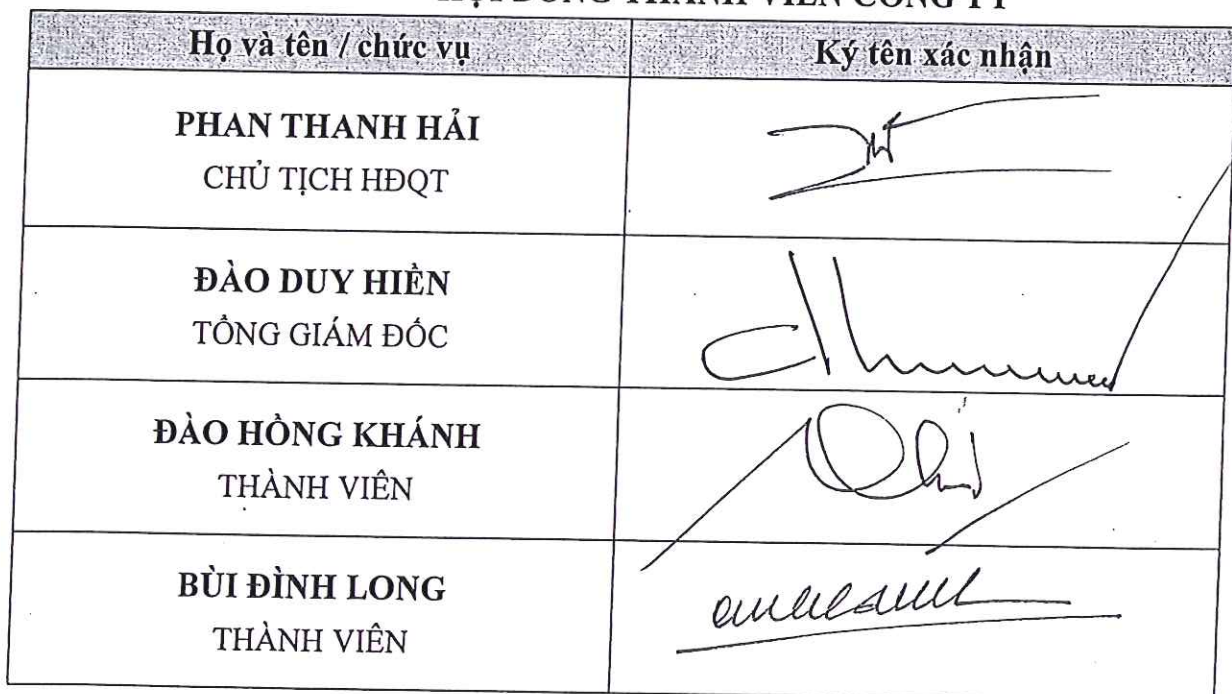 HỘI ĐỒNG THÀNH VIÊN CÔNG TY
Họ và tên / chức vụ
Ký tên xác nhận
PHAN THANH HẢI
CHỦ TỊCH HĐQT
ĐÀO DUY HIỀN
TỔNG GIÁM ĐỐC
ĐÀO HỒNG KHÁNH
THÀNH VIÊN
BÙI ĐÌNH LONG
THÀNH VIÊN